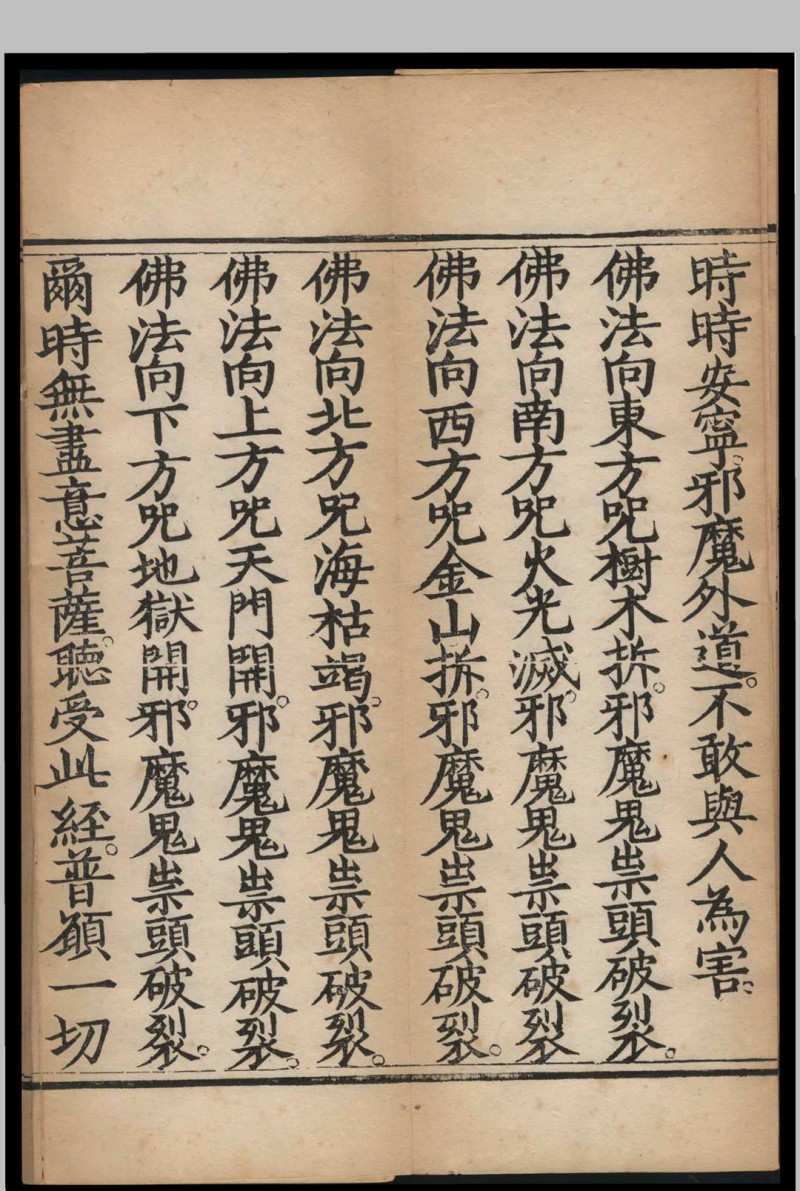 時時安寧。邪魔外道。不敢與人為害。
佛法向東方咒樹木拆。邪魔鬼祟頭破裂。
佛法向南方咒火光滅。邪魔鬼祟頭破裂。
佛法向西方咒金山拆。邪魔鬼祟頭破裂。
佛法向北方咒海枯竭。邪魔鬼祟頭破裂。
佛法向上方咒天門開。邪魔鬼祟頭破裂。
佛法向下方咒地獄開。邪魔鬼祟頭破裂。
爾時無盡意菩薩。聽受此經。普願一切